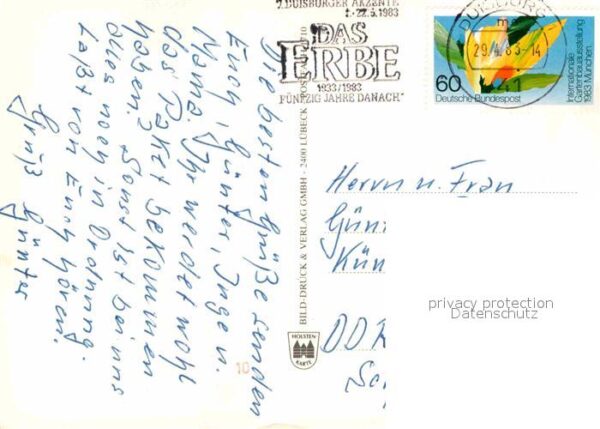 7. DUISBURGER AKZENTE
1.-22.5.1983
DAS
ERBE
1933/1983
FÜNFZIG JAHRE DANACH"
DUISBURG
m
29.4.83-14
41
60
Deutsche Bundespost
Internationale
Gartenbauausstellung
1983 München
Die besten Grüße senden
Euch, Günter, Inge u.
Mama. Ihr werdet wohl
das Paket bekommen
haben. Sonst ist bei uns
alles noch in Ordnung.
Laßt von Euch hören.
Gruß Günter
BILD-DRUCK & VERLAG GMBH · 2400 LÜBECK · POSTFACH
HOLSTEN
KARTE
10
Herrn u. Frau
Gün
Kün
DDR
privacy protection
Datenschutz